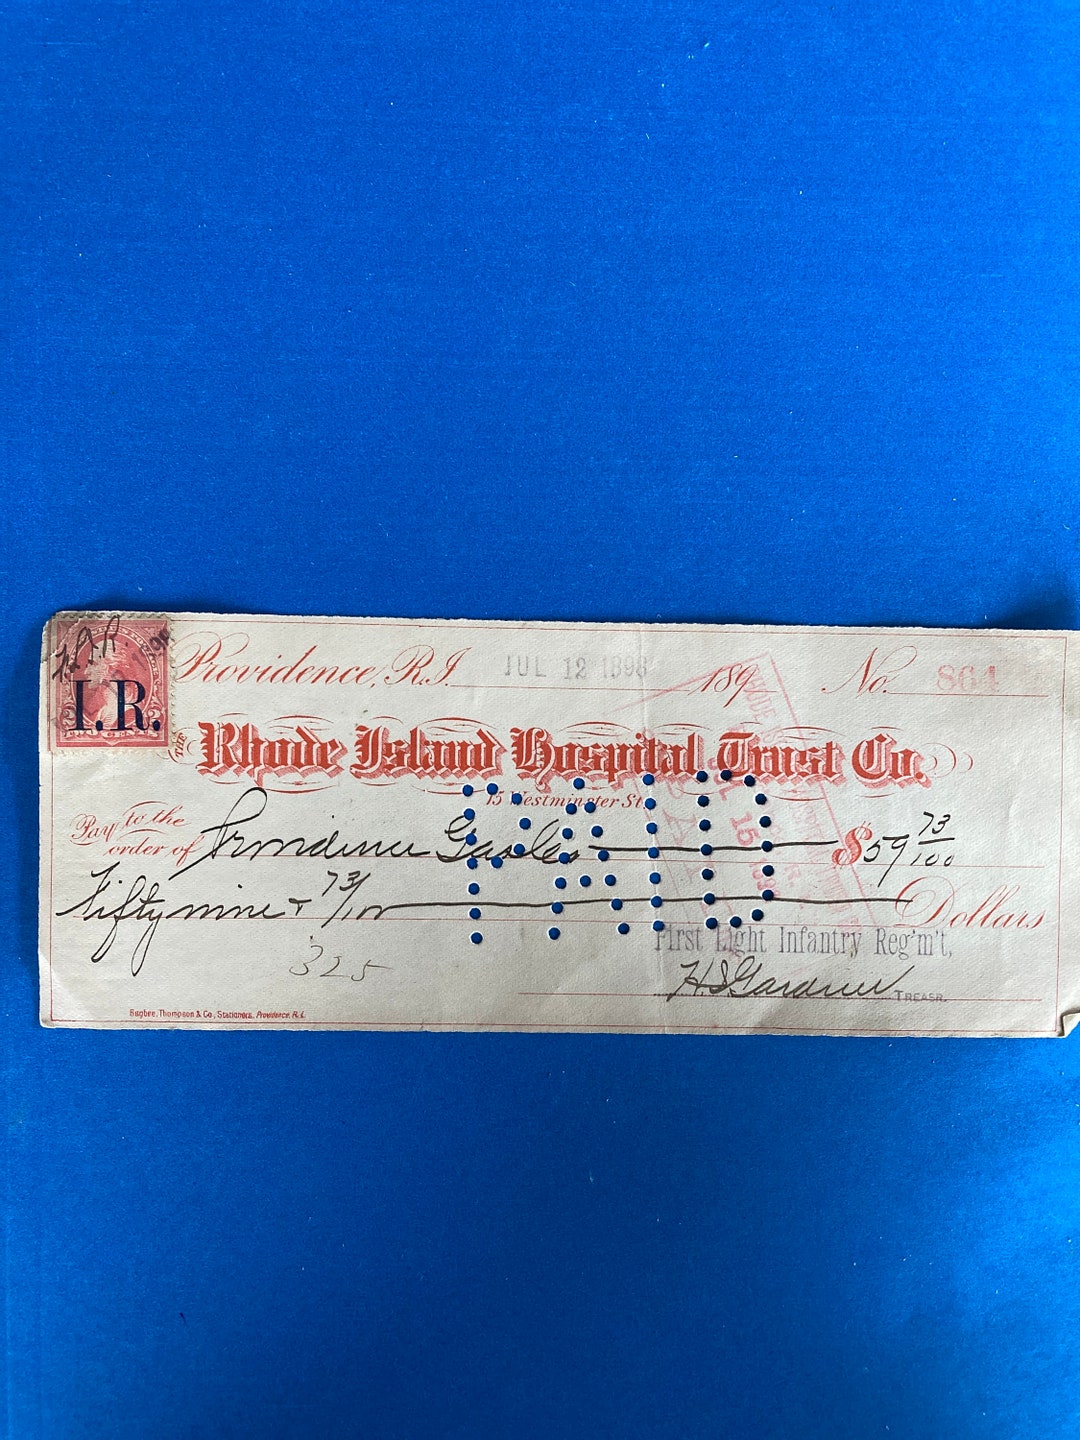 F.L.I.R.
I.R.
TWO CENTS
Providence, R.I. JUL 12 1898 189 No. 864
THE Rhode Island Hospital Trust Co.
15 Westminster St.
PAID
Pay to the
order of Providence Gas Co $59 73/100
Fifty nine & 73/100 Dollars
First Light Infantry Reg'm't,
325
H.S. Gardner TREASR.
Bugbee, Thompson & Co., Stationers, Providence, R.I.